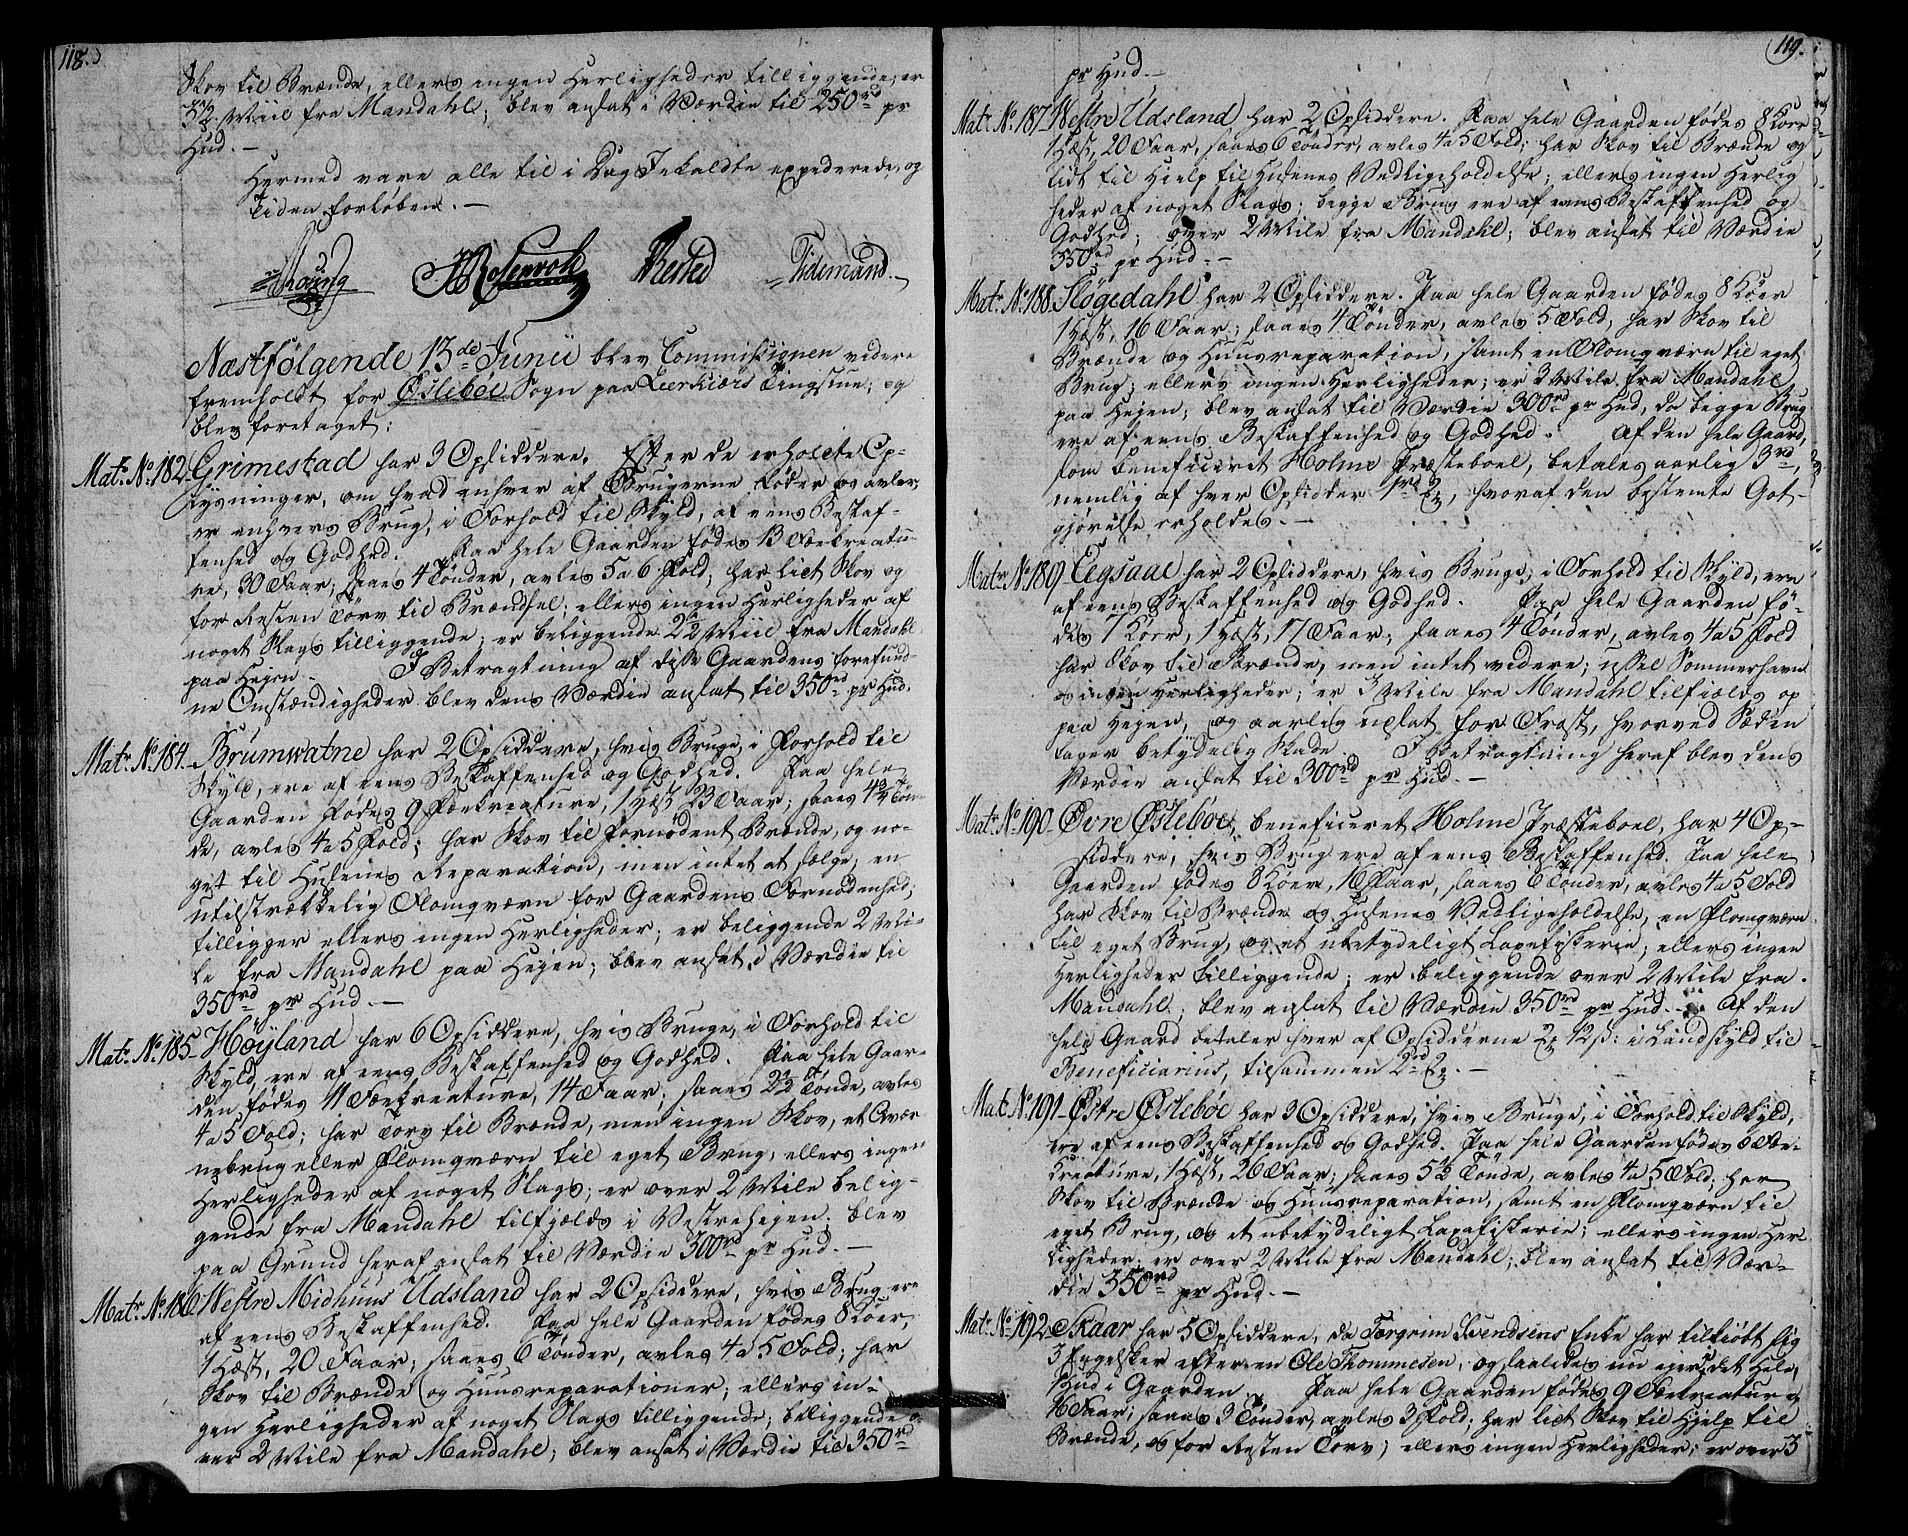 118.
Skov til Brænde, ellers ingen Herligheder tilliggende; er
3½ Miil fra Mandahl; blev ansat i Værdie til 250rd pr
Hud. —
Hermed vare alle til i Dag Indkaldte expederede, og
Tiden forløben. —
Rosenvold Tidemand. —
Næstfølgende 13de Junii blev Commissionen videre
fremholdt for Øslebøe Sogn paa Leerkiærs Tingstue; og
blev foretaget:
Matr. No. 182. Grimestad har 3 Opsiddere. Efter de erholdte Op-
lysninger, om hvad enhver af Brugerne føder og avler,
er enhvers Brug, i Forhold til Skyld, af eens Beskaf-
fenhed og Godhed. Paa hele Gaarden fødes 13 Fækreatu-
re, 30 Faar; saaes 4 Tønder, avles 5 a 6 Fold; har lidt Skov og
for Resten Törv til Brændsel; ellers ingen Herligheder af
noget Slags tilliggende; er beliggende 2½ Miil fra Mandahl
paa Hejen. I Betragtning af disse Gaardens forefund-
ne Omstændigheder blev dens Værdie ansat til 350rd pr Hud.
Matr. No. 184. Brumwatne har 2 Opsiddere, hvis Bruge, i Forhold til
Skyld, ere af eens Beskaffenhed og Godhed. Paa hele
Gaarden fødes 9 Fækreature, 1 Hæst 23 Faar; saaes 4¾ Tøn-
de, avles 4 a 5 Fold; har Skov til fornødent Brænde, og no-
get til Husenes Reparation, men intet at sælge; en
utilstrækkelig Flomqværn for Gaardens Fornødenhed;
tilligger ellers ingen Herligheder; er beliggende 2 Mi-
le fra Mandahl paa Hejen; blev ansat i Værdie til
350rd pr Hud. —
Matr. No. 185. Höyland har 6 Opsiddere, hvis Bruge, i Forhold til
Skyld, ere af eens Beskaffenhed og Godhed. Paa hele Gaar-
den fødes 11 Fækreature, 14 Faar; saaes 2½ Tønde, avles
4 a 5 Fold; har Torv til Brænde, men ingen Skov, et Qvær-
nebrug eller Flomqværn til eget Brug; ellers ingen
Herligheder af noget Slags; er over 2 Mile belig-
gende fra Mandahl tilfjelds i Vestrehejen; blev
paa Grund heraf ansat til Værdie 300rd pr Hud. —
Matr. No. 186. Westre Midhuus Udsland har 2 Opsiddere, hvis Brug ere
af eens Beskaffenhed. Paa hele Gaarden fødes 8 Köer,
1 Hæst, 20 Faar; saaes 6 Tønder, avles 4 a 5 Fold; har
Skov til Brænde og Huusreparationer; ellers in-
gen Herligheder af noget Slags tilliggende; beliggende o-
ver 2 Mile fra Mandahl; blev ansat i Værdie til 350rd
119.
pr Hud. —
Matr. No. 187. Westre Udsland har 2 Opsiddere. Paa hele Gaarden fødes 8 Köer
1 Hæst, 20 Faar, saaes 6 Tønder, avles 4 a 5 Fold; har Skov til Brænde og
lidt til Hielp til Husenes Vedligeholdelse; ellers ingen Herlig
heder af noget Slags; begge Brug ere af eens Beskaffenhed og
Godhed; over 2 Mile fra Mandahl; blev ansat til Værdie
350rd pr Hud. —
Matr. No. 188. Slögedahl har 2 Opsiddere. Paa hele Gaarden fødes 8 Köer
1 Hæst, 16 Faar; saaes 4 Tönder, avles 5 Fold; har Skov til
Brænde og Huusreparation, samt en Flomqværn til eget
Brug; ellers ingen Herligheder; er 3 Mile fra Mandahl
paa Hejen; blev ansat til Værdie 300rd pr Hud, da begge Brug
ere af eens Beskaffenhed og Godhed. Af den hele Gaard,
som beneficeret Holme Præsteboel, betales aarlig 3rd,
nemlig af hver Opsidder 1rd 2, hvoraf den bestemte Got-
gjørelse erholdes. —
Matr. No. 189. Eegsaae har 2 Opsiddere, hvis Bruge, i Forhold til Skyld, ere
af eens Beskaffenhed og Godhed. Paa hele Gaarden fø-
des 7 Köer, 1 Hæst, 17 Faar; saaes 4 Tønder, avles 4 a 5 Fold
har Skov til Brænde, men intet videre; ussel Sommerhavn
og ingen Herligheder; er 3 Mile fra Mandahl tilfields op
paa Hejen, og aarlig udsat for Frost, hvorved Sæden
tager betydelig Skade. I Betragtning heraf blev dens
Værdie ansat til 300rd pr Hud. —
Matr. No. 190. Øvre Øslebøe, beneficeret Holme Præsteboel, har 4 Op-
siddere, hvis Brug ere af eens Beskaffenhed. Paa hele
Gaarden fødes 8 Köer, 16 Faar, saaes 6 Tønder, avles 4 a 5 Fold
har Skov til Brænde og Husenes Vedligeholdelse, en Flomqværn
til eget Brug, og et ubetydeligt Laxefiskerie; ellers ingen
Herligheder tilliggende; er beliggende over 2 Mile fra
Mandahl; blev ansat til Værdie 350rd pr Hud. — Af den
hele Gaard betaler hver af Opsidderne 2 12ß: i Landskyld til
Beneficiarius, tilsammen 2rd 2. —
Matr. No. 191. Østre Øslebøe har 3 Opsiddere, hvis Bruge, i Forhold til Skyld,
ere af eens Beskaffenhed og Godhed. Paa hele Gaarden fødes 6 Fæe-
kreature, 1 Hæst, 26 Faar; saaes 5½ Tønde, avles 4 a 5 Fold; har
Skov til Brænde og Huusreparation, samt en Flomqværn til
eget Brug, og et ubetydeligt Laxefiskerie; ellers ingen Her-
ligheder; er over 2 Mile fra Mandahl; blev ansat til Vær-
die 350rd pr Hud. —
Matr. No. 192. Skaar har 5 Opsiddere, da Torgrim Svendsens Enke har tilkiøbt sig
3 Engelsker efter en Ole Thommesen, og saaledes nu ejer det Hele,
Hud i Gaarden. Paa hele Gaarden fødes 9 Fækreature og
16 Faar; saaes 3 Tønder, avles 3 Fold; har lidt Skov til Hjelp til
Brænde, og for Resten Torv; ellers ingen Herligheder; er over 3